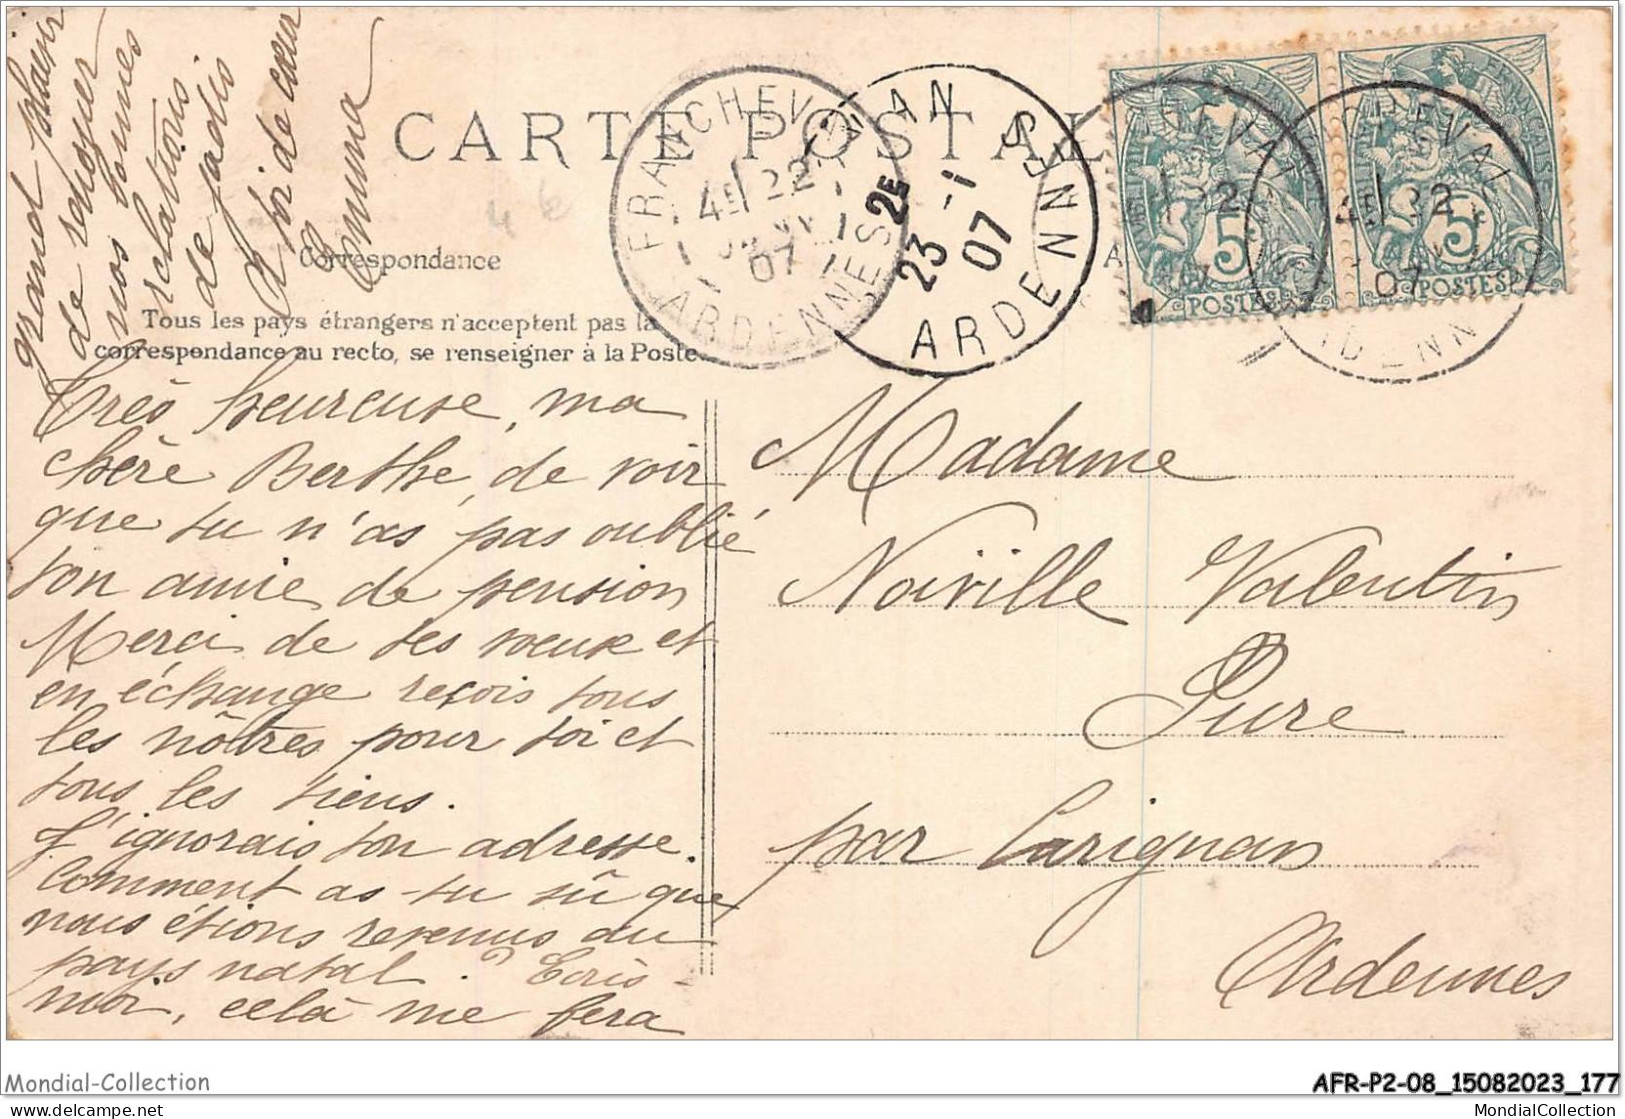 CARTE POSTALE
Correspondance
Tous les pays étrangers n'acceptent pas la
correspondance au recto, se renseigner à la Poste
FRANCHEVAL
4E 22
07
ARDENNES
CARIGNAN
2E
23 -1
07
ARDENNES
POSTES
5
POSTES
5
4E 22
07
Très heureuse, ma
chère Berthe, de voir
que tu n'as pas oublié
ton amie de pension
Merci de tes voeux et
en échange reçois tous
les nôtres pour toi et
tous les tiens.
J'ignorais ton adresse.
Comment as-tu sû que
nous étions revenus au
pays natal. ? Ecris-
moi, celà me fera
grand plaisir
de renouer
nos bonnes
relations
de jadis
A toi de cœur
Emma
Madame
Noiville Valentin
Pure
par Carignan
Ardennes
Mondial-Collection
AFR-P2-08_15082023_177
delcampe.net
MondialCollection